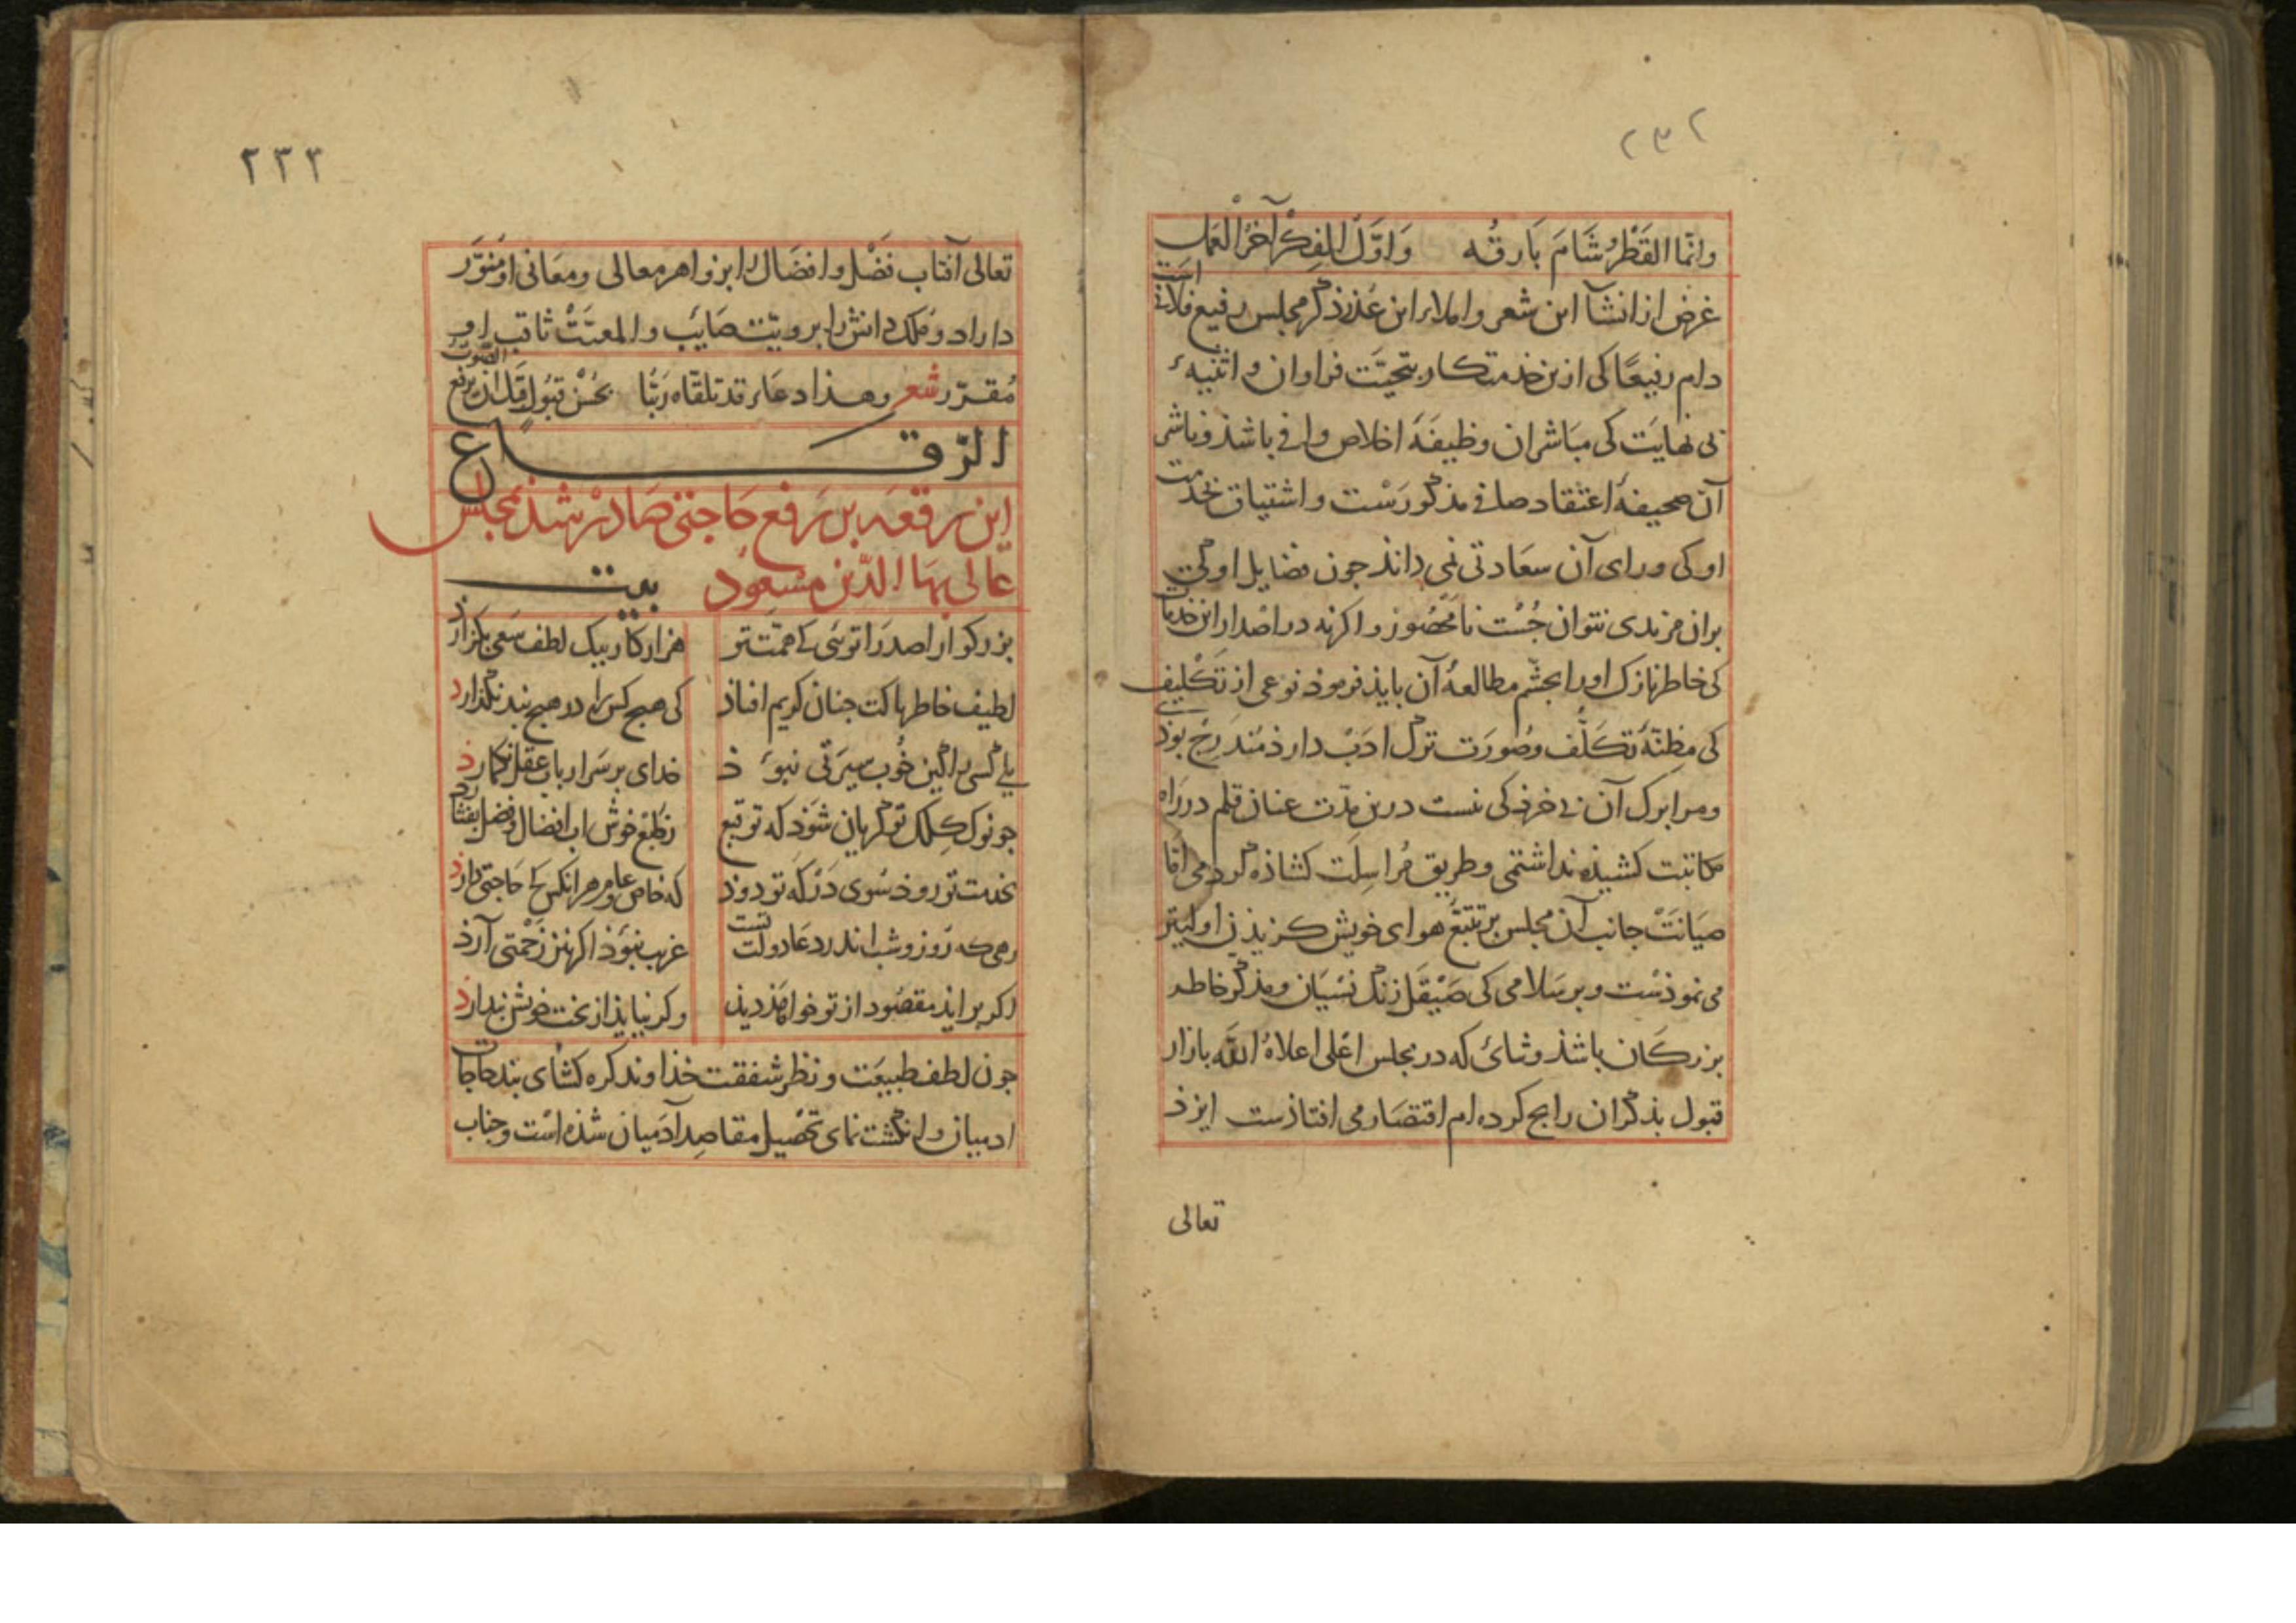 ٢٣٢
وانّما القَطْرُ شَامَ بَارقُه وَاوّلَ الفِكْرِ آخرُ العَمَل
غرض از انشآ این شعر و املاء این عُذر ذکر مجلس رفیع فلانی است
دام رفیعًا کی ازین خدمتکار بتحیّت فراوان و اثنیهٔ
بی نهایَت کی مبَاشران وظیفَهٔ اخلاص وافی باشذ و ناشر
آن صحیفهٔ اعتقاد صافی مذکورَسْت و اشتیاق بخدمت
او کی ورای آن سعَادتی نمی داند جون فضایل او کی
بران مزیدی نتوان جُسْت نامَحْصُور و اکرنه در اصْدار این خدمات
کی خاطر نازک اورا بجشّم مطالعهٔ آن بایذ فرموذ نوعی از تَکْلیف
کی مظنّهٔ تکَلّف وصُورَت ترک ادَبْ دارذ مُندَرِجْ بوذی
ومرا برک آن بی خرذکی نیست درین مدّت عنان قلم در رَاه
مکاتبت کشیذه نداشتمی وطریق مُراسِلَت کشاذه کردمی امّا
صیَانَتْ جانب آن مجلس بر تتبّع هوای خویش کزیذن اولیتر
می نموذسْت و بر سَلامی کی صَیْقَل زنگ نسْیَان و مذکّر خاطر
بزرکان باشذ و ثنائی که در مجلس اعْلی اعلاهُ اللّه بازار
قبول بذکران رایج کرده ام اقتصَار می افتاذست ایزذ
تعالی
٢٣٣
تعالی آفتاب فَضْل و افضَال را بزواهر معالی ومعَانی او مُنَوّرَ
داراد و مُلک دانش را برویّت صَایبْ و المعیَّتْ ثاقب او
مُقرّر شعر وهذا دعَاء قد تلقّاه رَبُّنا بحُسْن قبُولٍ قبْل ان یرفع الصَّوتَ
الرّقاع
این رقعَه بر رَفع حَاجتی صَادرْ شد بمجلس
عالی بهَا الدّین مسْعوُد بیت
بزرکوارا صدرَا توئی کی همّت تو هزار کار بیک لطف سَعی بکزارَذ
لطیف خاطر باکت جنان کریم افتاذ کی هیج کس را در هیج بند نکذارد
بلی کسی را کین خُوب سیرَتی نبوَذ خدای بر سَر ارباب عقل نکمارذ
جو نوک کِلک تو کریان شوَذ که توقیع زطبع خوش اب افضال و فضل بفشارد
بخدمت تو روذ سُوی دَرْکه تو دوَذ که خاص و عام هر انکس کی حَاجتی دارذ
رهی که رَوز و شب اندر دعَا دولت تست غریب نبوَذ اکر نیز زَحْمتی آرذ
اکر براید مقصُود از تو خواهَذ دید و کر نیایذ از بخت خویش بندارذ
جون لطف طبیعَت و نظر شفقت خذاوند کره کشای بند حاجات
ادیبان و انکشت نمای تحْصیل مقاصِد آدَمیان شذه است و جناب